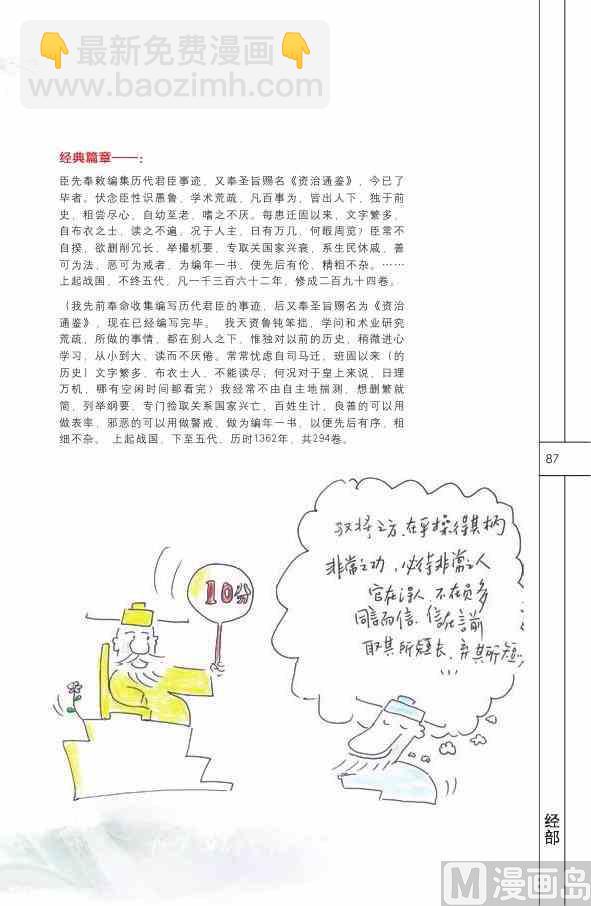 👇最新免费漫画👇
www.baozimh.com
经典篇章——：
臣先奉敕编集历代君臣事迹，又奉圣旨赐名《资治通鉴》，今已了
毕者。伏念臣性识愚鲁，学术荒疏，凡百事为，皆出人下，独于前
史，粗尝尽心，自幼至老，嗜之不厌。每患迁固以来，文字繁多，
自布衣之士，读之不遍，况于人主，日有万几，何暇周览？臣常不
自揆，欲删削冗长，举撮机要，专取关国家兴衰，系生民休戚，善
可为法，恶可为戒者，为编年一书，使先后有伦，精粗不杂。……
上起战国，不终五代，凡一千三百六十二年，修成二百九十四卷。
（我先前奉命收集编写历代君臣的事迹，后又奉圣旨赐名为《资治
通鉴》，现在已经编写完毕。 我天资鲁钝笨拙，学问和术业研究
荒疏，所做的事情，都在别人之下，惟独对以前的历史，稍微进心
学习，从小到大、读而不厌倦。常常忧虑自司马迁、班固以来（的
历史）文字繁多，布衣士人，不能读尽，何况对于皇上来说，日理
万机，哪有空闲时间都看完？我经常不由自主地揣测，想删繁就
简，列举纲要，专门捡取关系国家兴亡，百姓生计，良善的可以用
做表率，邪恶的可以用做警戒，做为编年一书，以便先后有序，粗
细不杂。 上起战国，下至五代，历时1362年，共294卷。
87
驭将之方，在乎操得其柄
非常之功，必待非常之人
官在得人，不在员多
同言而信，信在言前
取其所长，弃其所短
10分
经部
M漫画岛